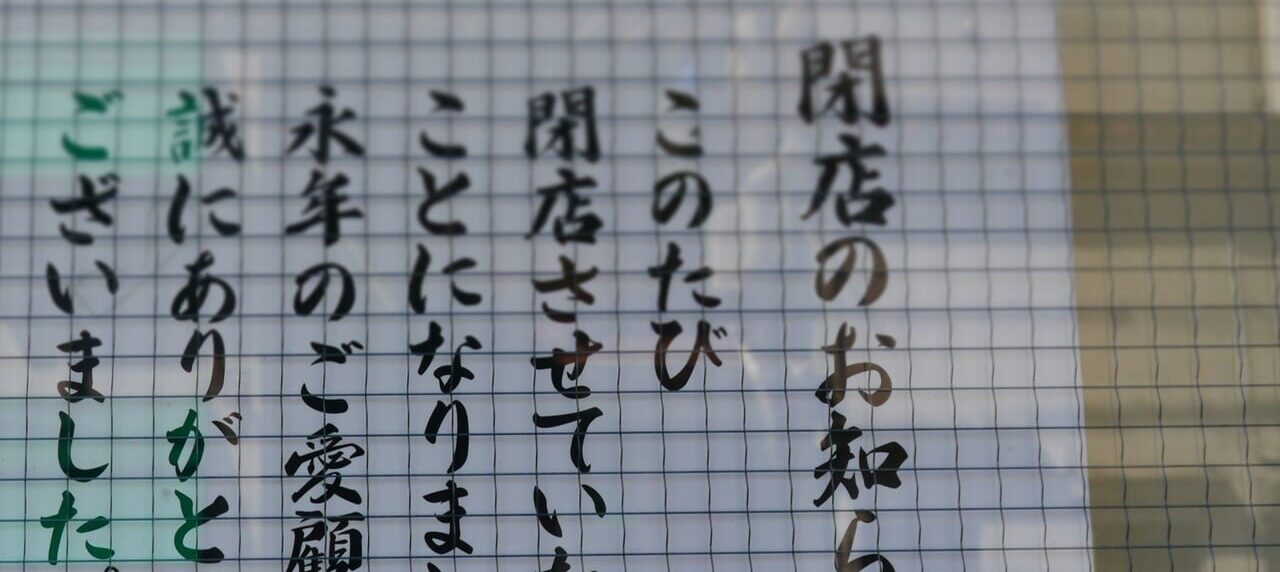 閉店のお知ら
このたび
閉店させてい
ことになりま
永年のご愛顧
誠にありがと
ございました。